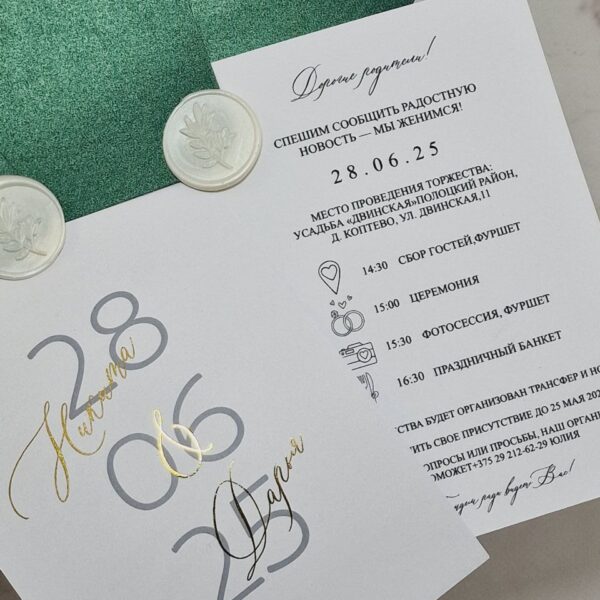 Дорогие родители!
СПЕШИМ СООБЩИТЬ РАДОСТНУЮ
НОВОСТЬ — МЫ ЖЕНИМСЯ!
28.06.25
МЕСТО ПРОВЕДЕНИЯ ТОРЖЕСТВА:
УСАДЬБА «ДВИНСКАЯ»ПОЛОЦКИЙ РАЙОН,
Д. КОПТЕВО, УЛ. ДВИНСКАЯ,11
14:30 СБОР ГОСТЕЙ,ФУРШЕТ
15:00 ЦЕРЕМОНИЯ
15:30 ФОТОСЕССИЯ, ФУРШЕТ
16:30 ПРАЗДНИЧНЫЙ БАНКЕТ
БУДЕТ ОРГАНИЗОВАН ТРАНСФЕР И
СВОЕ ПРИСУТСТВИЕ ДО 25 МАЯ
ИЛИ ПРОСЬБЫ, НАШ
+375 29 212-62-29 ЮЛИЯ
рады видеть Вас!
28
Никита
06
&
Дарья
25